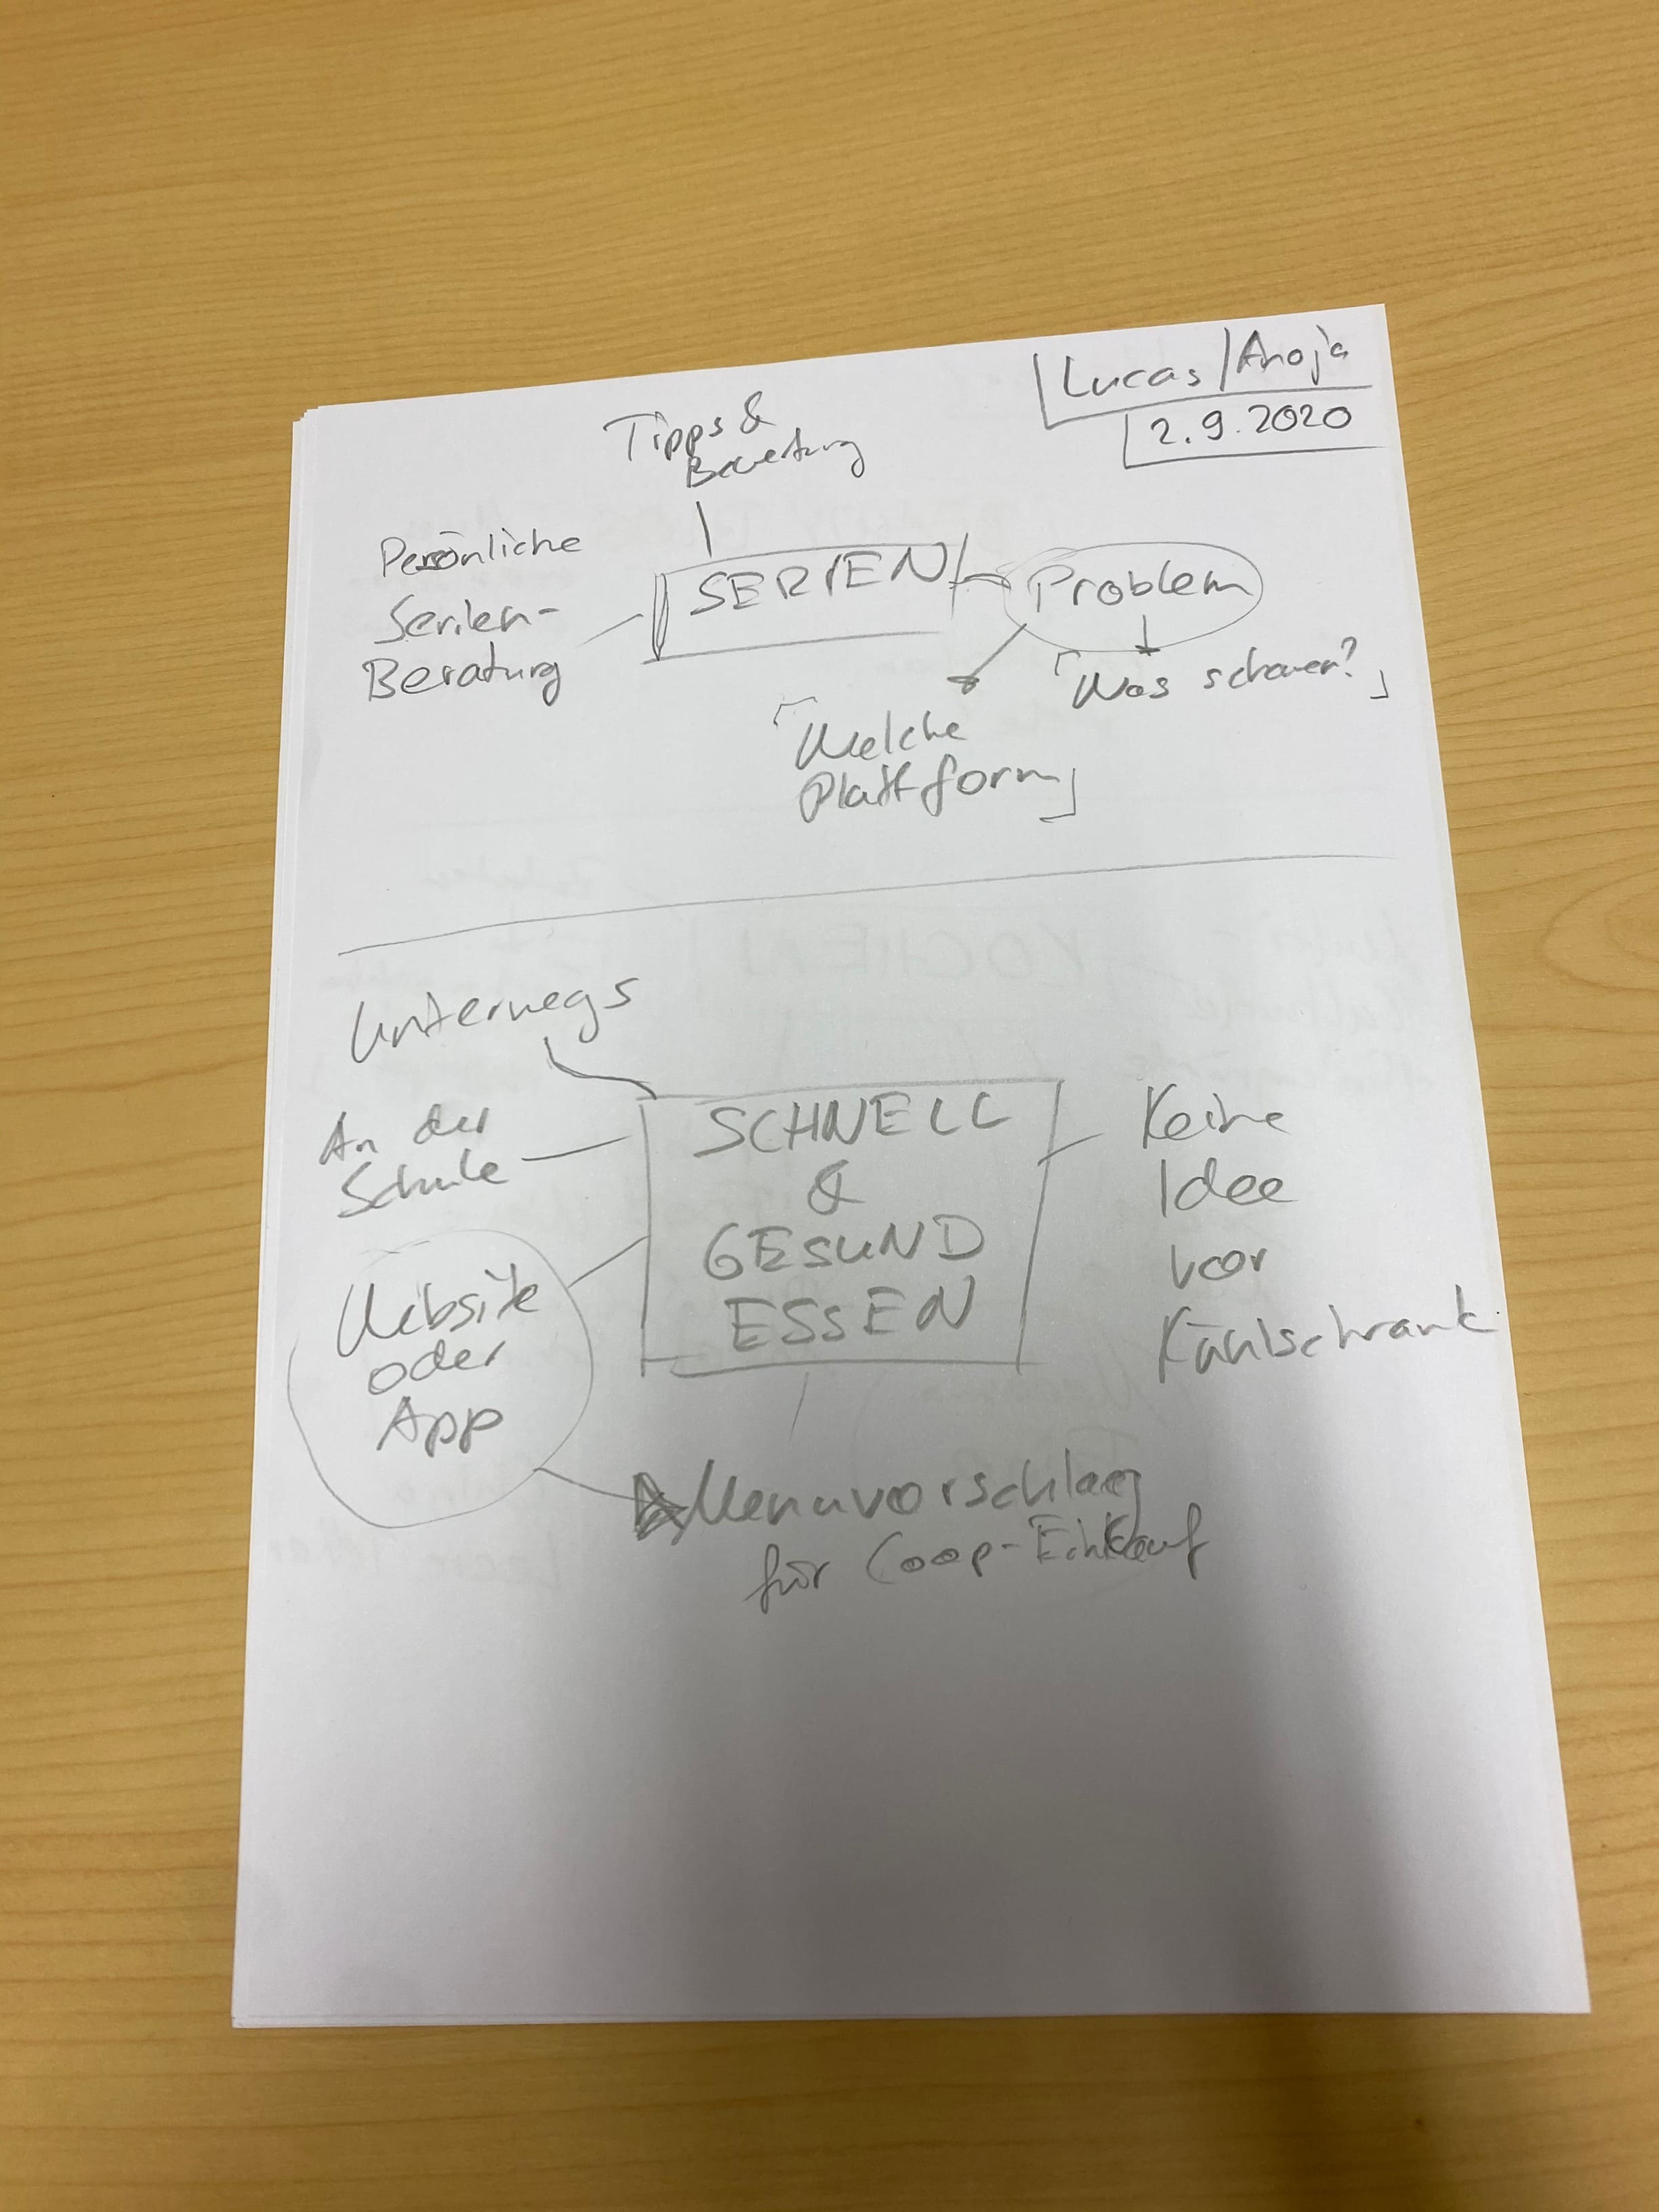 Lucas / Anoja
2.9.2020
Tipps &
Bewertung
Persönliche
Serien-
Beratung
SERIEN
Problem
「Was schauen?」
「Welche
Plattform」
Unterwegs
An der
Schule
Website
oder
App
SCHNELL
&
GESUND
ESSEN
Keine
Idee
vor
Kühlschrank
Menuvorschlag
für Coop-Einkauf
KOCHEN